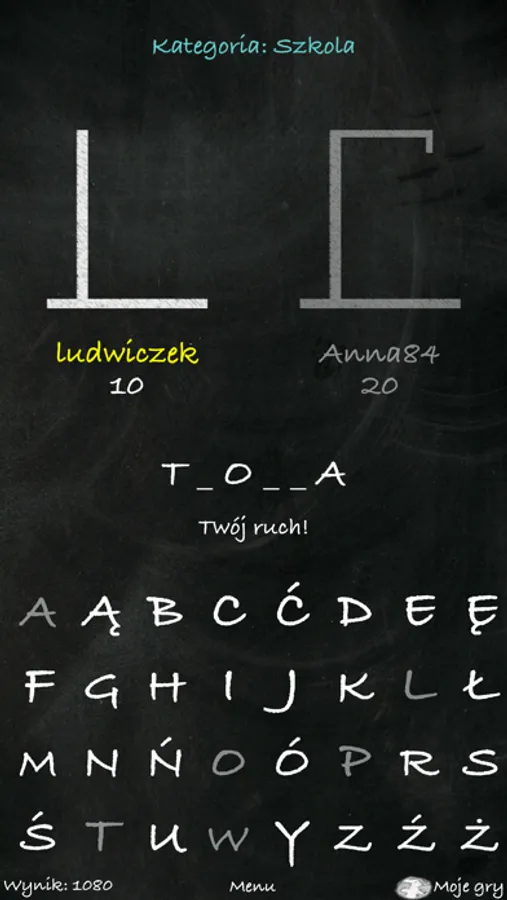 Kategoria: Szkoła
ludwiczek Anna84
10 20
T _ O _ _ A
Twój ruch!
A Ą B C Ć D E Ę
F G H I J K L Ł
M N Ń O Ó P R S
Ś T U W Y Z Ź Ż
Wynik: 1080 Menu Moje gry